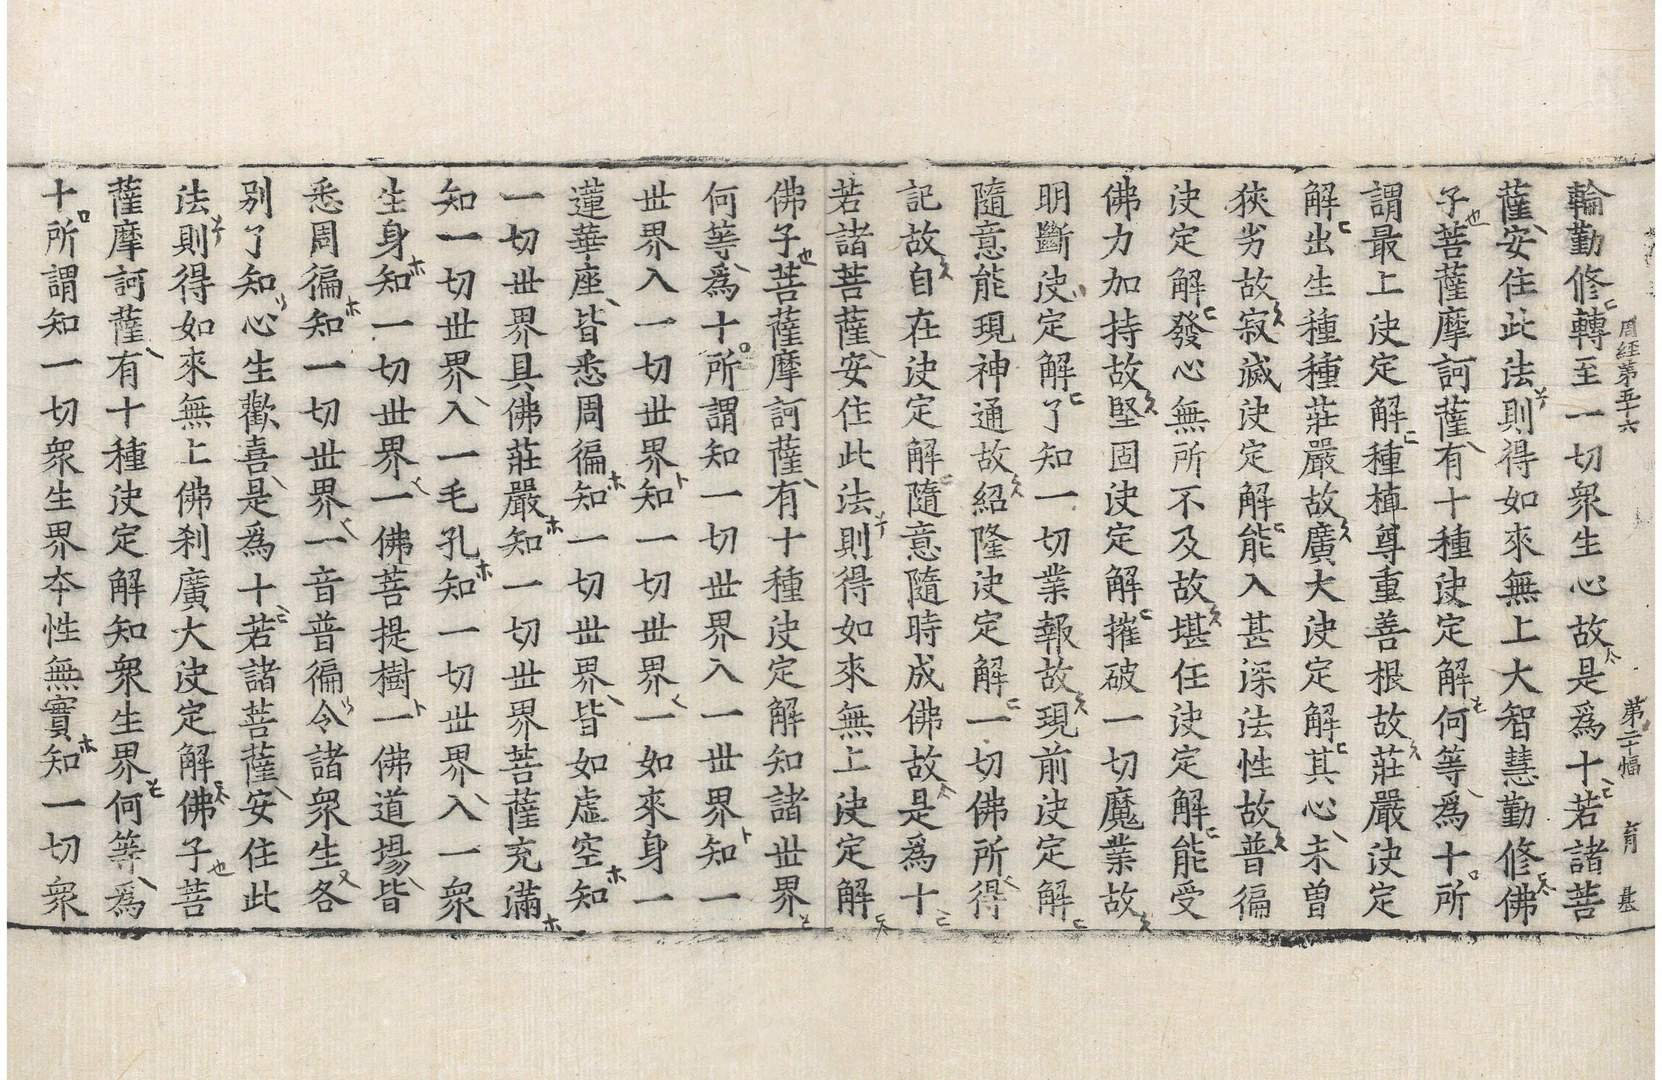 周經第五十六 第二十幅 育 甚
輪勤修轉至一切衆生心故是爲十若諸菩
薩安住此法則得如來無上大智慧勤修佛
子菩薩摩訶薩有十種決定解何等爲十所
謂最上決定解種植尊重善根故莊嚴決定
解出生種種莊嚴故廣大決定解其心未曾
狹劣故寂滅決定解能入甚深法性故普徧
決定解發心無所不及故堪任決定解能受
佛力加持故堅固決定解摧破一切魔業故
明斷決定解了知一切業報故現前決定解
隨意能現神通故紹隆決定解一切佛所得
記故自在決定解隨意隨時成佛故是爲十
若諸菩薩安住此法則得如來無上決定解
佛子菩薩摩訶薩有十種決定解知諸世界
何等爲十所謂知一切世界入一世界知一
世界入一切世界知一切世界一如來身一
蓮華座皆悉周徧知一切世界皆如虛空知
一切世界具佛莊嚴知一切世界菩薩充滿
知一切世界入一毛孔知一切世界入一衆
生身知一切世界一佛菩提樹一佛道場皆
悉周徧知一切世界一音普徧令諸衆生各
别了知心生歡喜是爲十若諸菩薩安住此
法則得如來無上佛刹廣大決定解佛子菩
薩摩訶薩有十種決定解知衆生界何等爲
十所謂知一切衆生界本性無實知一切衆